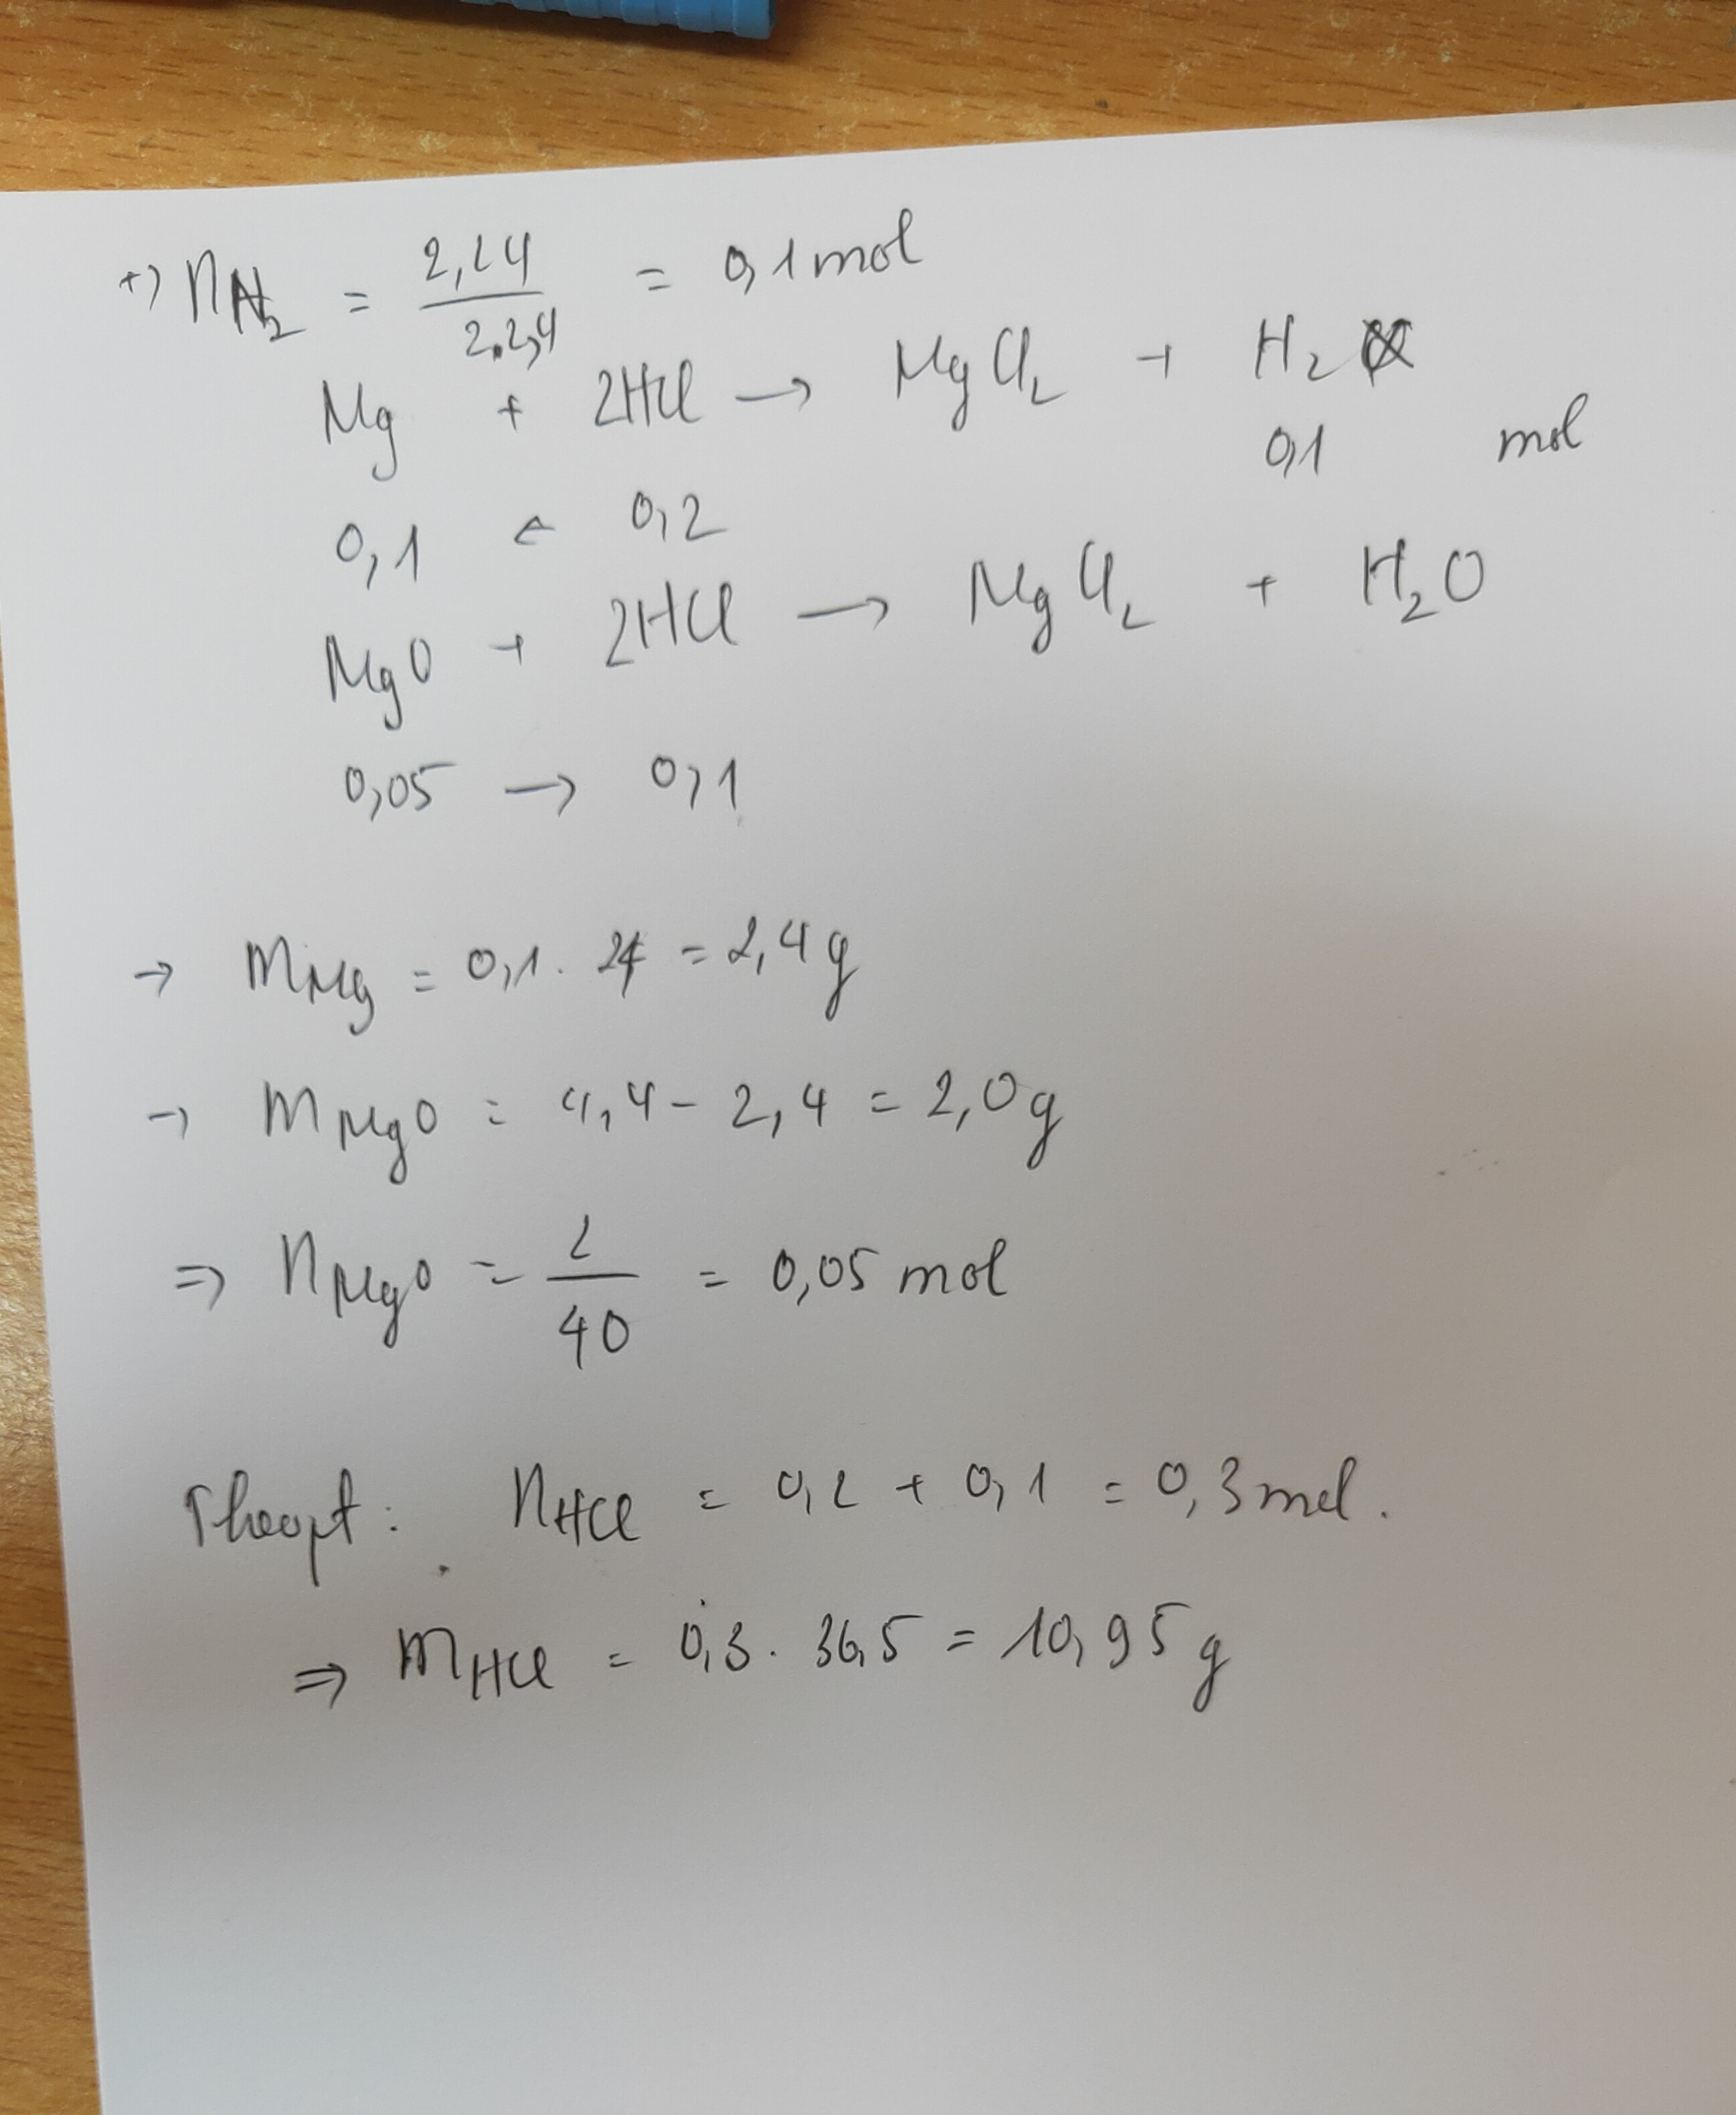 +) nH2 = 2,24 / 22,4 = 0,1 mol
Mg + 2HCl → MgCl2 + H2
0,1 ← 0,2 0,1 mol
MgO + 2HCl → MgCl2 + H2O
0,05 → 0,1
→ mMg = 0,1 . 24 = 2,4 g
→ mMgO = 4,4 - 2,4 = 2,0 g
⇒ nMgO = 2 / 40 = 0,05 mol
Theo pt : nHCl = 0,2 + 0,1 = 0,3 mol.
⇒ mHCl = 0,3 . 36,5 = 10,95 g